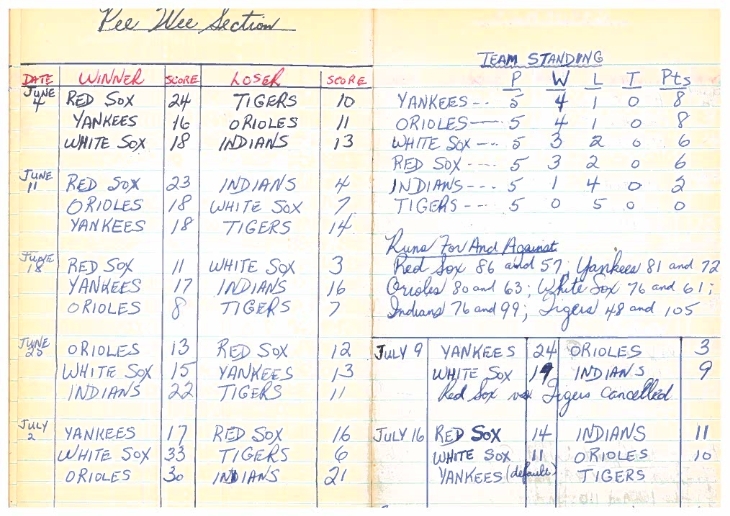 Pee Wee Section
DATE WINNER SCORE LOSER SCORE
JUNE 4 RED SOX 24 TIGERS 10
YANKEES 16 ORIOLES 11
WHITE SOX 18 INDIANS 13
JUNE 11 RED SOX 23 INDIANS 4
ORIOLES 18 WHITE SOX 7
YANKEES 18 TIGERS 14
JUNE 18 RED SOX 11 WHITE SOX 3
YANKEES 17 INDIANS 16
ORIOLES 8 TIGERS 7
JUNE ORIOLES 13 RED SOX 12
WHITE SOX 15 YANKEES 13
INDIANS 22 TIGERS 11
JULY 2 YANKEES 17 RED SOX 16
WHITE SOX 33 TIGERS 6
ORIOLES 30 INDIANS 21
TEAM STANDING
P W L T Pts
YANKEES -- 5 4 1 0 8
ORIOLES — 5 4 1 0 8
WHITE SOX --- 5 3 2 0 6
RED SOX --- 5 3 2 0 6
INDIANS --- 5 1 4 0 2
TIGERS --- 5 0 5 0 0
Runs For And Against
Red Sox 86 and 57; Yankees 81 and 72
Orioles 80 and 63; White Sox 76 and 61;
Indians 76 and 99; Tigers 48 and 105
JULY 9 YANKEES 24 ORIOLES 3
WHITE SOX 19 INDIANS 9
Red Sox vs Tigers cancelled
JULY 16 RED SOX 14 INDIANS 11
WHITE SOX 11 ORIOLES 10
YANKEES (default) TIGERS